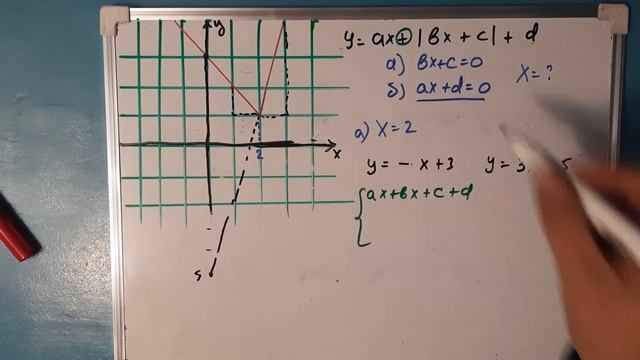 y = ax + |bx + c| + d
а) bx+c=0
б) ax+d=0
x=?
а) x=2
y = -x+3
y = 3
5
{ ax+bx+c+d
y
x
2
5